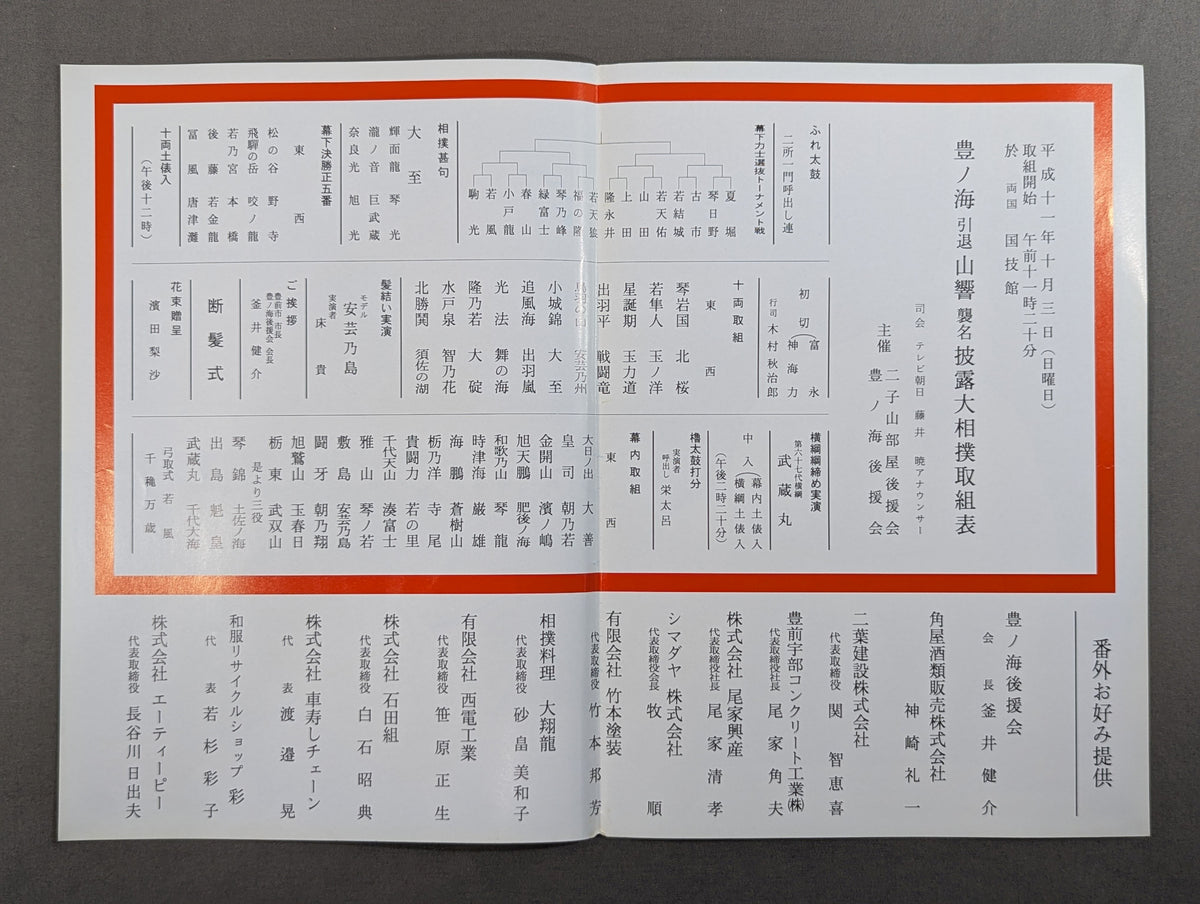 平成十一年十月三日（日曜日）
取組開始 午前十一時二十分
於 両国 国技館
豊ノ海引退山響襲名披露大相撲取組表
司会 テレビ朝日 藤井 暁アナウンサー
主催 二子山部屋後援会
豊ノ海後援会
ふれ太鼓
二所一門呼出し連
幕下力士選抜トーナメント戦
夏堀
琴日野
古市
若結城
若天佑
山田
上田
隆永井
若天狼
福の隆
琴乃峰
緑富士
春山
小戸龍
若風
駒光
相撲甚句
大至
輝面龍 琴光
瀧ノ音 巨武蔵
奈良光 旭光
幕下決勝正五番
東 西
松の谷 野寺
飛騨の岳 咬ノ龍
若乃宮 本橋
後藤 若金龍
冨風 唐津灘
十両土俵入
（午後十二時）
初切（富永
神海力
行司 木村秋治郎
十両取組
東 西
琴岩国 北桜
若隼人 玉ノ洋
星誕期 玉力道
出羽平 戦闘竜
鳥羽の山 安芸乃州
小城錦 大至
追風海 出羽嵐
光法 舞の海
隆乃若 大碇
水戸泉 智乃花
北勝鬨 須佐の湖
髪結い実演
モデル 安芸乃島
実演者 床貴
ご挨拶
豊前市 市長
豊ノ海後援会 会長
釜井健介
断髪式
花束贈呈
濱田梨沙
横綱綱締め実演
第六十七代横綱
武蔵丸
中入（幕内土俵入
横綱土俵入
（午後二時二十分）
櫓太鼓打分
実演者
呼出し 栄太呂
幕内取組
東 西
大日ノ出 大善
皇司 朝乃若
金開山 濱ノ嶋
旭天鵬 肥後ノ海
和歌乃山 琴龍
時津海 巌雄
海鵬 蒼樹山
栃乃洋 寺尾
貴闘力 若の里
千代天山 湊富士
雅山 琴ノ若
敷島 安芸乃島
闘牙 朝乃翔
旭鷲山 玉春日
栃東 武双山
是より三役
琴錦 土佐ノ海
出島 魁皇
武蔵丸 千代大海
弓取式 若風
千穐万歳
番外お好み提供
豊ノ海後援会
会長 釜井健介
角屋酒類販売株式会社
神崎礼一
二葉建設株式会社
代表取締役 関智恵喜
豊前宇部コンクリート工業㈱
代表取締役社長 尾家角夫
株式会社 尾家興産
代表取締役社長 尾家清孝
シマダヤ 株式会社
代表取締役会長 牧順
有限会社 竹本塗装
代表取締役 竹本邦芳
相撲料理 大翔龍
代表取締役 砂畠美和子
有限会社 西電工業
代表取締役 笹原正生
株式会社 石田組
代表取締役 白石昭典
株式会社 車寿しチェーン
代表 渡邉晃
和服リサイクルショップ 彩
代表 若杉彩子
株式会社 エーティーピー
代表取締役 長谷川日出夫